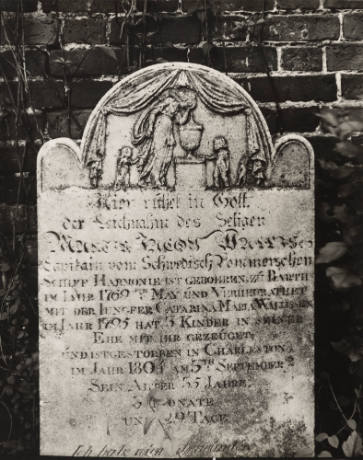 Hier ruhet in Gott
der Leichnahm des Seligen
MARTIN JACOB WALLIS
Capitain vom Schwedisch Pommerschen
SCHIFF HARMONIE IST GEBOHREN ZU BARTH
IM JAHR 1769 MAY UND VERHEIRATHET
MIT DER JUNGFER CATARINA MARIA WALLISEN
IM JAHR 1795 HAT 3 KINDER IN SEINER
EHE MIT IHR GEZEUGET
UND IST GESTORBEN IN CHARLESTON
IM JAHR 1804 AM 5TEN SEPTEMBER
SEIN ALTER 35 JAHRE
3 MONATE
UND 29 TAGE
Ich habe